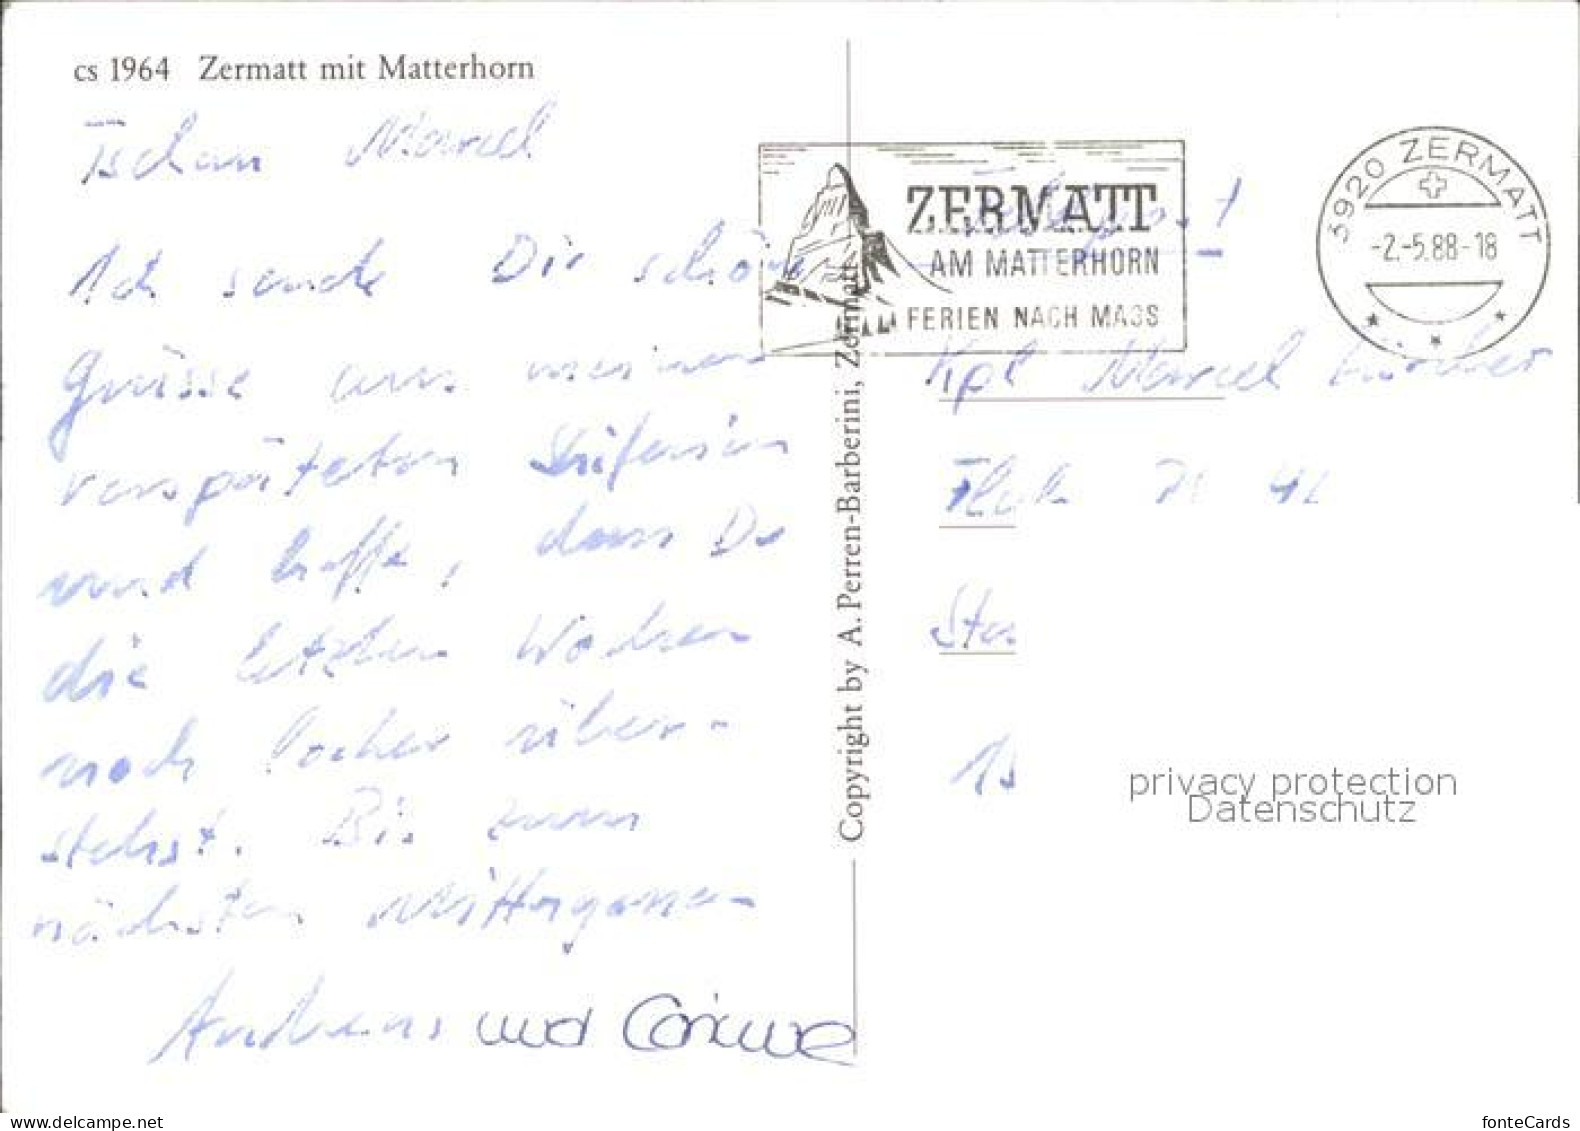 cs 1964 Zermatt mit Matterhorn
Tschau Marcel
Ich sende Dir schöne
Grüsse aus meinen
verspäteten Skiferien
und hoffe, dass Du
die letzten Wochen
noch locker über-
stehst. Bis zum
nächsten
Andreas und Corinne
Copyright by A. Perren-Barberini, Zermatt
ZERMATT
AM MATTERHORN
FERIEN NACH MASS
3920 ZERMATT
-2.-5.88-18
Feldpost
Kpl Marcel
privacy protection
Datenschutz
fonteCards